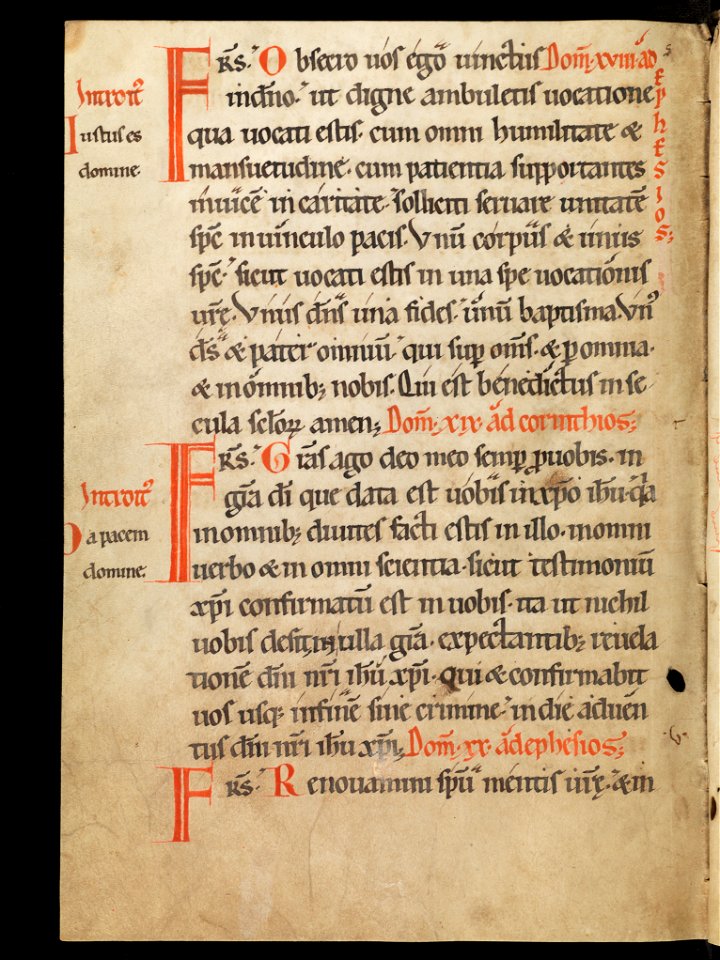 Introit̄
Iustus es
domine.
Fr̄s. Obsecro uos ego uinctus Dom̄. xviii. ad ephesios;
in dn̄o. ut digne ambuletis uocatione
qua uocati estis. cum omni humilitate &
mansuetudine. cum patientia supportantes
inuicē in caritate. solliciti seruare unitatē
sp̄c in uinculo pacis. Vnū corpus & unus
sp̄c. sicut uocati estis in una spe uocationis
ur̄ę. Vnus dn̄s una fides. unū baptisma. Vn᷒
ds̄ & pater omniū. qui sup̱ om̄s. & ꝑ omnia.
& in omnib; nobis. Qui est benedictus in se
cula sclꝝ amen; Dom̄. xix. ad corinthios;
Introit̄
Da pacem
domine.
Fr̄s. Gr̄as ago deo meo semꝑ ꝓ uobis. in
gr̄a dī que data est uobis in xp̄o ih̄u. q̄a
in omnib; diuites facti estis in illo. in omni
uerbo & in omni scientia. sicut testimoniū
xp̄i confirmatū est in uobis. ita ut nichil
uobis desit in ulla gr̄a. expectantib; reuela
tionē dn̄i nr̄i ih̄u xp̄i. qui & confirmabit
uos usq; in finē sine crimine. in die aduen
tus dn̄i nr̄i ih̄u xp̄i; Dom̄. xx. ad ephesios;
Fr̄s. Renouamini sp̄u mentis ur̄ę. & in